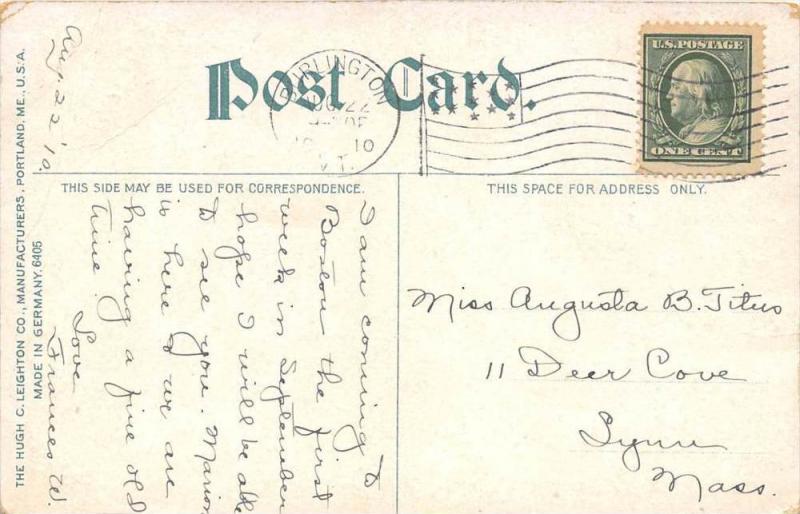 Aug. 22 '10.
Post Card.
BURLINGTON
AUG 22
10
VT.
U.S. POSTAGE
ONE CENT
THIS SIDE MAY BE USED FOR CORRESPONDENCE.
THIS SPACE FOR ADDRESS ONLY.
I am coming to
Boston the first
week in September
hope I will be able
to see you. Marion
is here & we are
having a fine old
time.
Love
Frances W.
Miss Augusta B. Titus
11 Deer Cove
Lynn
Mass.
THE HUGH C. LEIGHTON CO., MANUFACTURERS, PORTLAND, ME., U.S.A.
MADE IN GERMANY. 6405